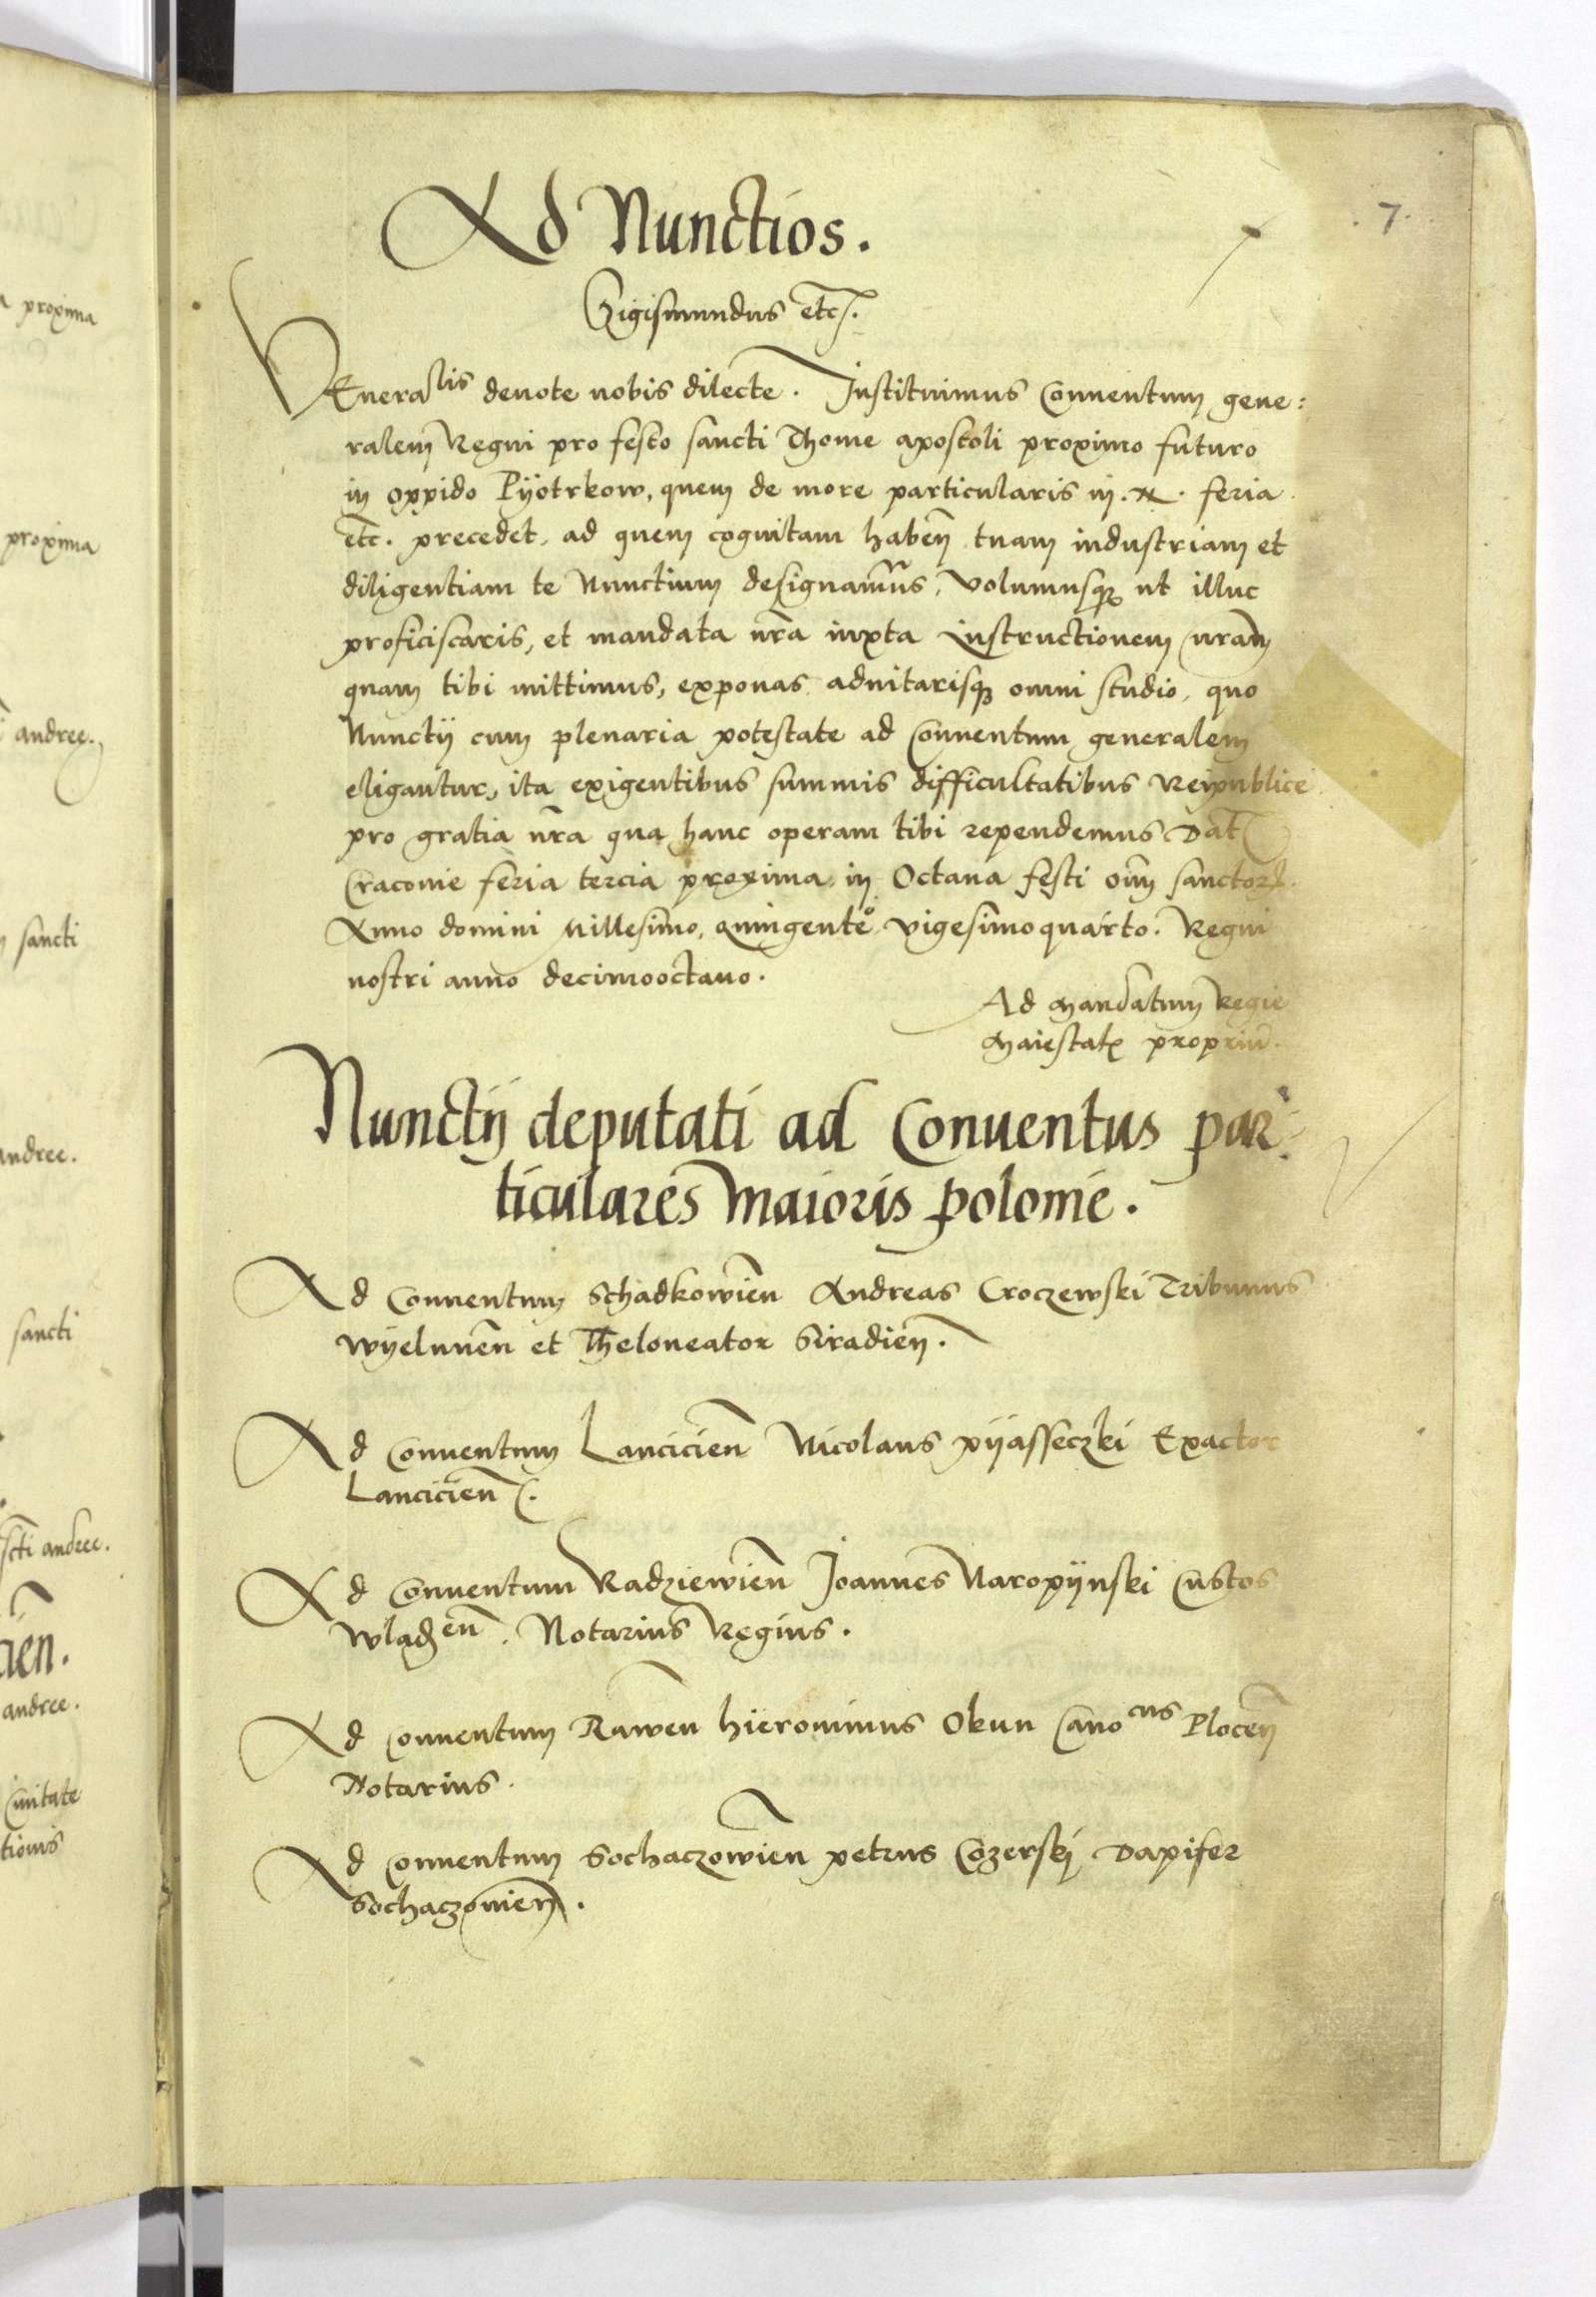 7.
Ad Nunctios.
Sigismundus etc.
VEnera^lis deuote nobis dilecte. Instituimus Conuentum gene:
ralem Regni pro festo sancti Thome apostoli proximo futuro
in oppido Pyotrkow, quem de more particularis in .N. feria
etc. precedet, ad quem cognitam habeñ tuam industriam et
diligentiam te Nunctium designamus, volumusqȝ ut illuc
proficiscaris, et mandata nr̃a iuxta instructionem nram̃
quam tibi mittimus, exponas adnitarisqȝ omni studio, quo
Nunctij cum plenaria potestate ad Conuentum generalem
eligantur, ita exigentibus summis difficultatibus Reipublice
pro gratia nr̃a qua hanc operam tibi rependemus Dat̃
Cracouie feria tercia proxima in Octaua festi oim̃ sanctorꝝ.
Anno domini Millesimo, quingenteº vigesimoquarto. Regni
nostri anno decimooctauo.
Ad Mandatum Regie
Maiestatꝭ propriũ.
Nunctij deputati ad Conuentus par:
ticulares Maioris Polonie.
Ad Conuentum Schadkowieñ Andreas Croczewski Tribunus
Wyeluneñ et Theloneator Siradieñ.
Ad Conuentum Lancicieñ Nicolaus pyasseczki Exactor
Lancicieñ.
Ad Conuentum Radziewieñ Joannes Naropynski Custos
Wladeñ. Notarius Regius.
Ad Conuentum Raweñ Hieronimus Okun Cano^cus Ploceñ
Notarius.
Ad Conuentum Sochaczowieñ petrus Cozerskj Dapifer
Sochaczouieñ.
proxima
proxima
andree.
sancti
andree.
sancti
scti andree.
andree.
Ciuitate